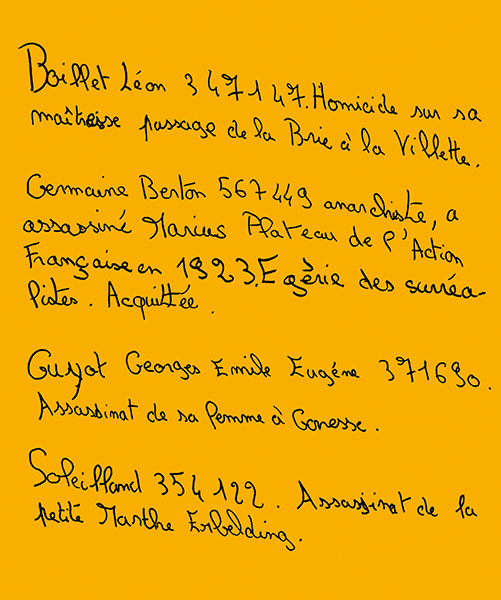 Boillet Léon 347147. Homicide sur sa
maîtresse passage de la Brie à la Villette.
Germaine Berton 567449 anarchiste, a
assassiné Marius Plateau de l'Action
Française en 1923. Egérie des surréa-
listes. Acquittée.
Guyot Georges Emile Eugéne 371690.
Assassinat de sa femme à Gonesse.
Soleilland 354122. Assassinat de la
petite Marthe Erbelding.